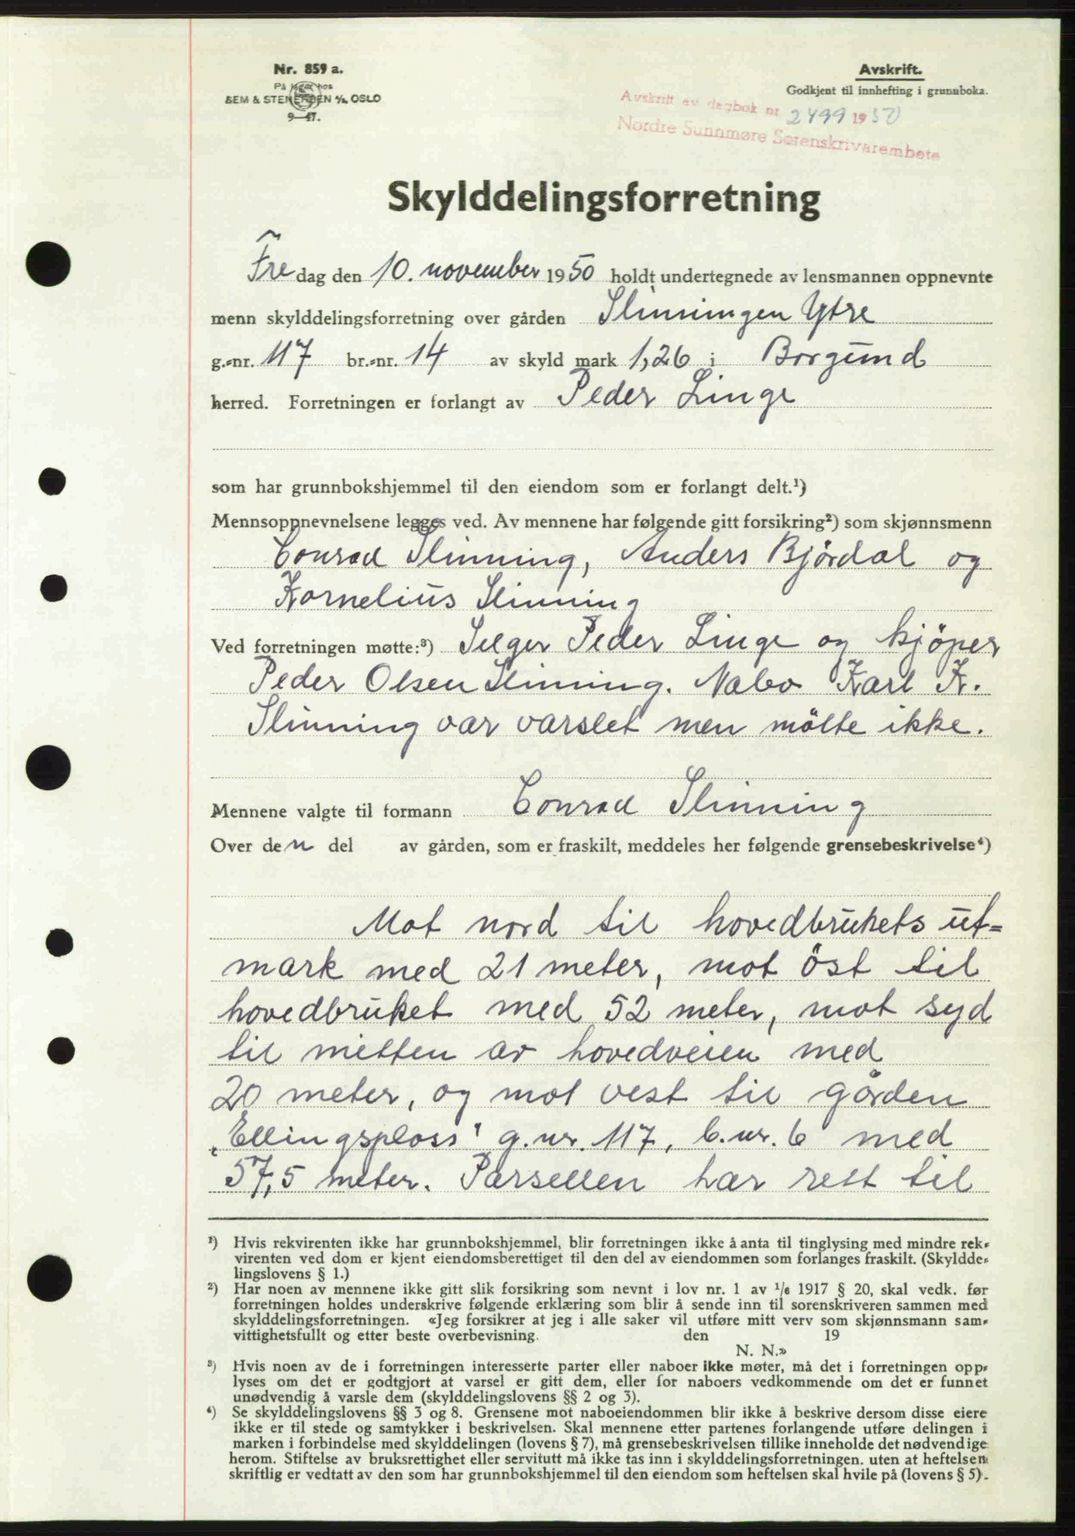 Nr. 859 a.
På lager hos
SEM & STENERSEN A/S, OSLO
9—47.
Avskrift.
Godkjent til innhefting i grunnboka.
Avskrift av dagbok nr 2499 1950
Nordre Sunnmøre Sorenskrivarembete
Skylddelingsforretning
Fredag den 10. november 1950 holdt undertegnede av lensmannen oppnevnte
menn skylddelingsforretning over gården Slinningen Ytre
g.-nr. 117 br.-nr. 14 av skyld mark 1,26 i Borgund
herred. Forretningen er forlangt av Peder Linge
som har grunnbokshjemmel til den eiendom som er forlangt delt.¹)
Mennsoppnevnelsene legges ved. Av mennene har følgende gitt forsikring²) som skjønnsmenn
Conrad Slinning, Anders Björdal og
Kornelius Slinning
Ved forretningen møtte:³) Selger Peder Linge og kjöper
Peder Olsen Slinning. Nabo Karl K.
Slinning var varslet men mötte ikke.
Mennene valgte til formann Conrad Slinning
Over den del av gården, som er fraskilt, meddeles her følgende grensebeskrivelse⁴)
Mot nord til hovedbrukets ut=
mark med 21 meter, mot öst til
hovedbruket med 52 meter, mot syd
til mitten av hovedveien med
20 meter, og mot vest til gården
„Ellingsplass" g.nr. 117, b.nr. 6 med
57,5 meter. Parsellen har rett til
¹) Hvis rekvirenten ikke har grunnbokshjemmel, blir forretningen ikke å anta til tinglysing med mindre rek-
virenten ved dom er kjent eiendomsberettiget til den del av eiendommen som forlanges fraskilt. (Skyldde-
lingslovens § 1.)
²) Har noen av mennene ikke gitt slik forsikring som nevnt i lov nr. 1 av 1/6 1917 § 20, skal vedk. før
forretningen holdes underskrive følgende erklæring som blir å sende inn til sorenskriveren sammen med
skylddelingsforretningen. «Jeg forsikrer at jeg i alle saker vil utføre mitt verv som skjønnsmann sam-
vittighetsfullt og etter beste overbevisning. den 19
N. N.»
³) Hvis noen av de i forretningen interesserte parter eller naboer ikke møter, må det i forretningen opp-
lyses om det er godtgjort at varsel er gitt dem, eller for naboers vedkommende om det er funnet
unødvendig å varsle dem (skylddelingslovens §§ 2 og 3).
⁴) Se skylddelingslovens §§ 3 og 8. Grensene mot naboeiendommen blir ikke å beskrive dersom disse eiere
ikke er til stede og samtykker i beskrivelsen. Skal mennene etter partenes forlangende utføre delingen i
marken i forbindelse med skylddelingen (lovens § 7), må grensebeskrivelsen tillike inneholde det nødvendige
herom. Stiftelse av bruksrettighet eller servitutt må ikke tas inn i skylddelingsforretningen. uten at heftelsen
skriftlig er vedtatt av den som har grunnbokshjemmel til den eiendom som heftelsen skal hvile på (lovens § 5).